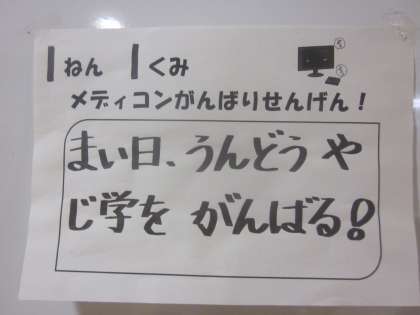 1ねん 1くみ
メディコンがんばりせんげん!
まい日、うんどう や
じ学を がんばる!